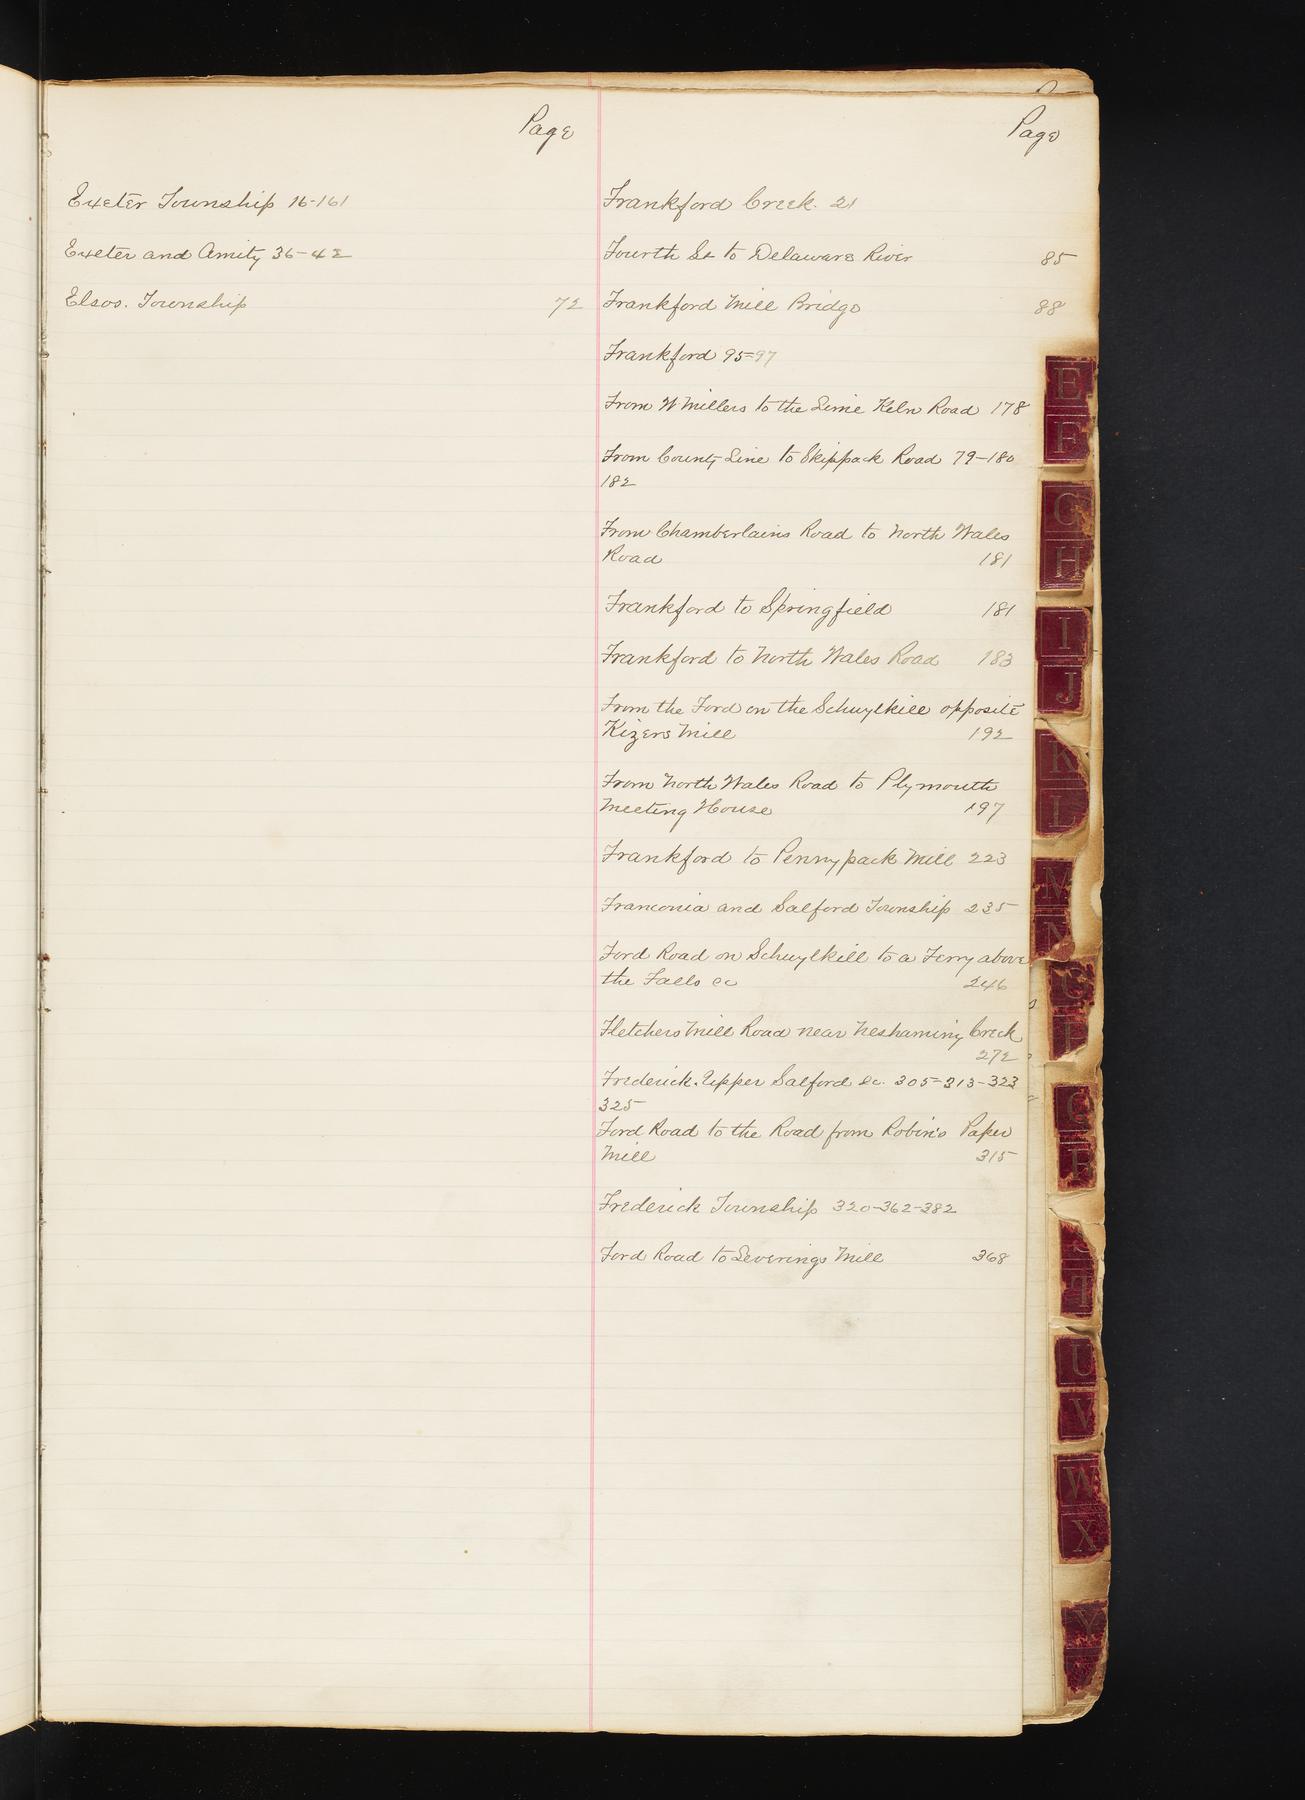 Page
Exeter Township 16-161
Exeter and Amity 36-42
Elsos. Township 72
Page
Frankford Creek. 21
Fourth St to Delaware River 85
Frankford Mill Bridge 88
Frankford 95=97
From W Millers to the Lime Keln Road 178
From County Line to Skippack Road 79-180
182
From Chamberlains Road to North Wales
Road 181
Frankford to Springfield 181
Frankford to North Wales Road 183
From the Ford on the Schuylkill opposite
Kizers Mill 192
From North Wales Road to Plymouth
Meeting House 197
Frankford to Pennypack Mill 223
Franconia and Salford Township 235
Ford Road on Schuylkill to a Ferry above
the Falls &c 246
Fletchers Mill Road near Neshaminy Creek
272
Frederick. Upper Salford &c. 305=313-323
325
Ford Road to the Road from Robin's Paper
Mill 315
Frederick Township 320-362-382
Ford Road to Leverings Mill 368
E
F
G
H
I
J
K
L
M
N
T
U
V
W
X
Y